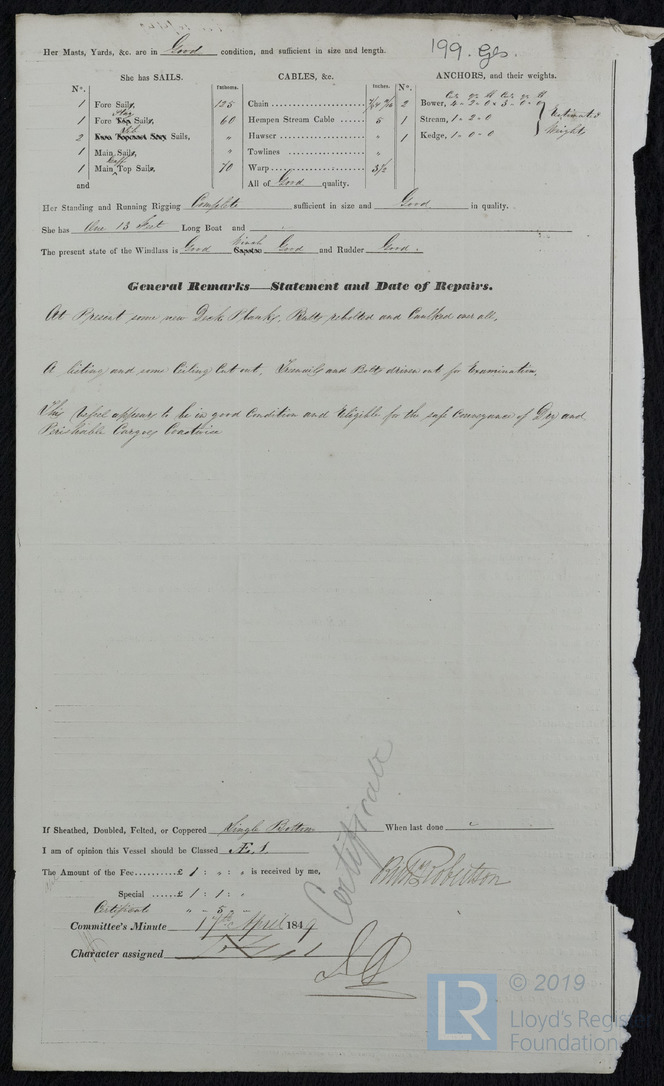 199. Gls.
Her Masts, Yards, &c. are in Good condition, and sufficient in size and length.
She has SAILS. CABLES, &c. ANCHORS, and their weights.
N°. Fathoms. Inches. N°. Cwt. qr. lb Cwt. qr. lb
1 Fore Sails, 125 Chain 2 Bower, 4-2-0 3-0-0
1 Fore Stay Sails, 60 Hempen Stream Cable 5 1 Stream, 1-2-0 Estimated
2 Sails, " Hawser " 1 Kedge, 1-0-0 Weights
1 Main Sails, " Towlines "
1 Main Gaff Top Sails, 70 Warp 3½
and All of Good quality.
Her Standing and Running Rigging Complete sufficient in size and Good in quality.
She has One 13 Feet Long Boat and
The present state of the Windlass is Good Winch Good and Rudder Good.
General Remarks—Statement and Date of Repairs.
At Present some new Deck Planks, Butts rebolted and Caulked over all,
A listing and some Ceiling Cut out, Treenails and Bolts driven out for Examination,
This Vessel appears to be in good Condition and Eligible for the safe conveyance of Dry and
Perishable Cargoes Coastwise
If Sheathed, Doubled, Felted, or Coppered Single Bottom When last done
I am of opinion this Vessel should be Classed Æ, 1,
The Amount of the Fee......£ 1 : " : " is received by me,
Robertson
Special ......£ 1 : 1 : "
Certificate " - 5 - "
Certificate
Committee's Minute 17th April 1849
Character assigned
© 2019
LR
Lloyd's Register
Foundation